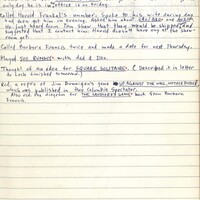 only day he is in office is on Friday.
Called Harold Frankel's number. Spoke to his wife during day
and got him in evening. Asked him about
He just heard from Tom Shaw, that they would be shipped and
suggested that I contact him. Harold doesn't have any at the show
room yet.
Called Barbara Francis twice and made a date for next Thursday.
Played with Dad & Dan.
Thought of an idea for SQUARE SOLITAIRE. (Described it in letter
to Loeb finished tomorrow.)
Did a review of Jim Dunnigan's game UP AGAINST THE WALL, MOTHERFUCKER
which was published in the Columbia Spectator.
Also did the diagram for back from Barbara
Francis.